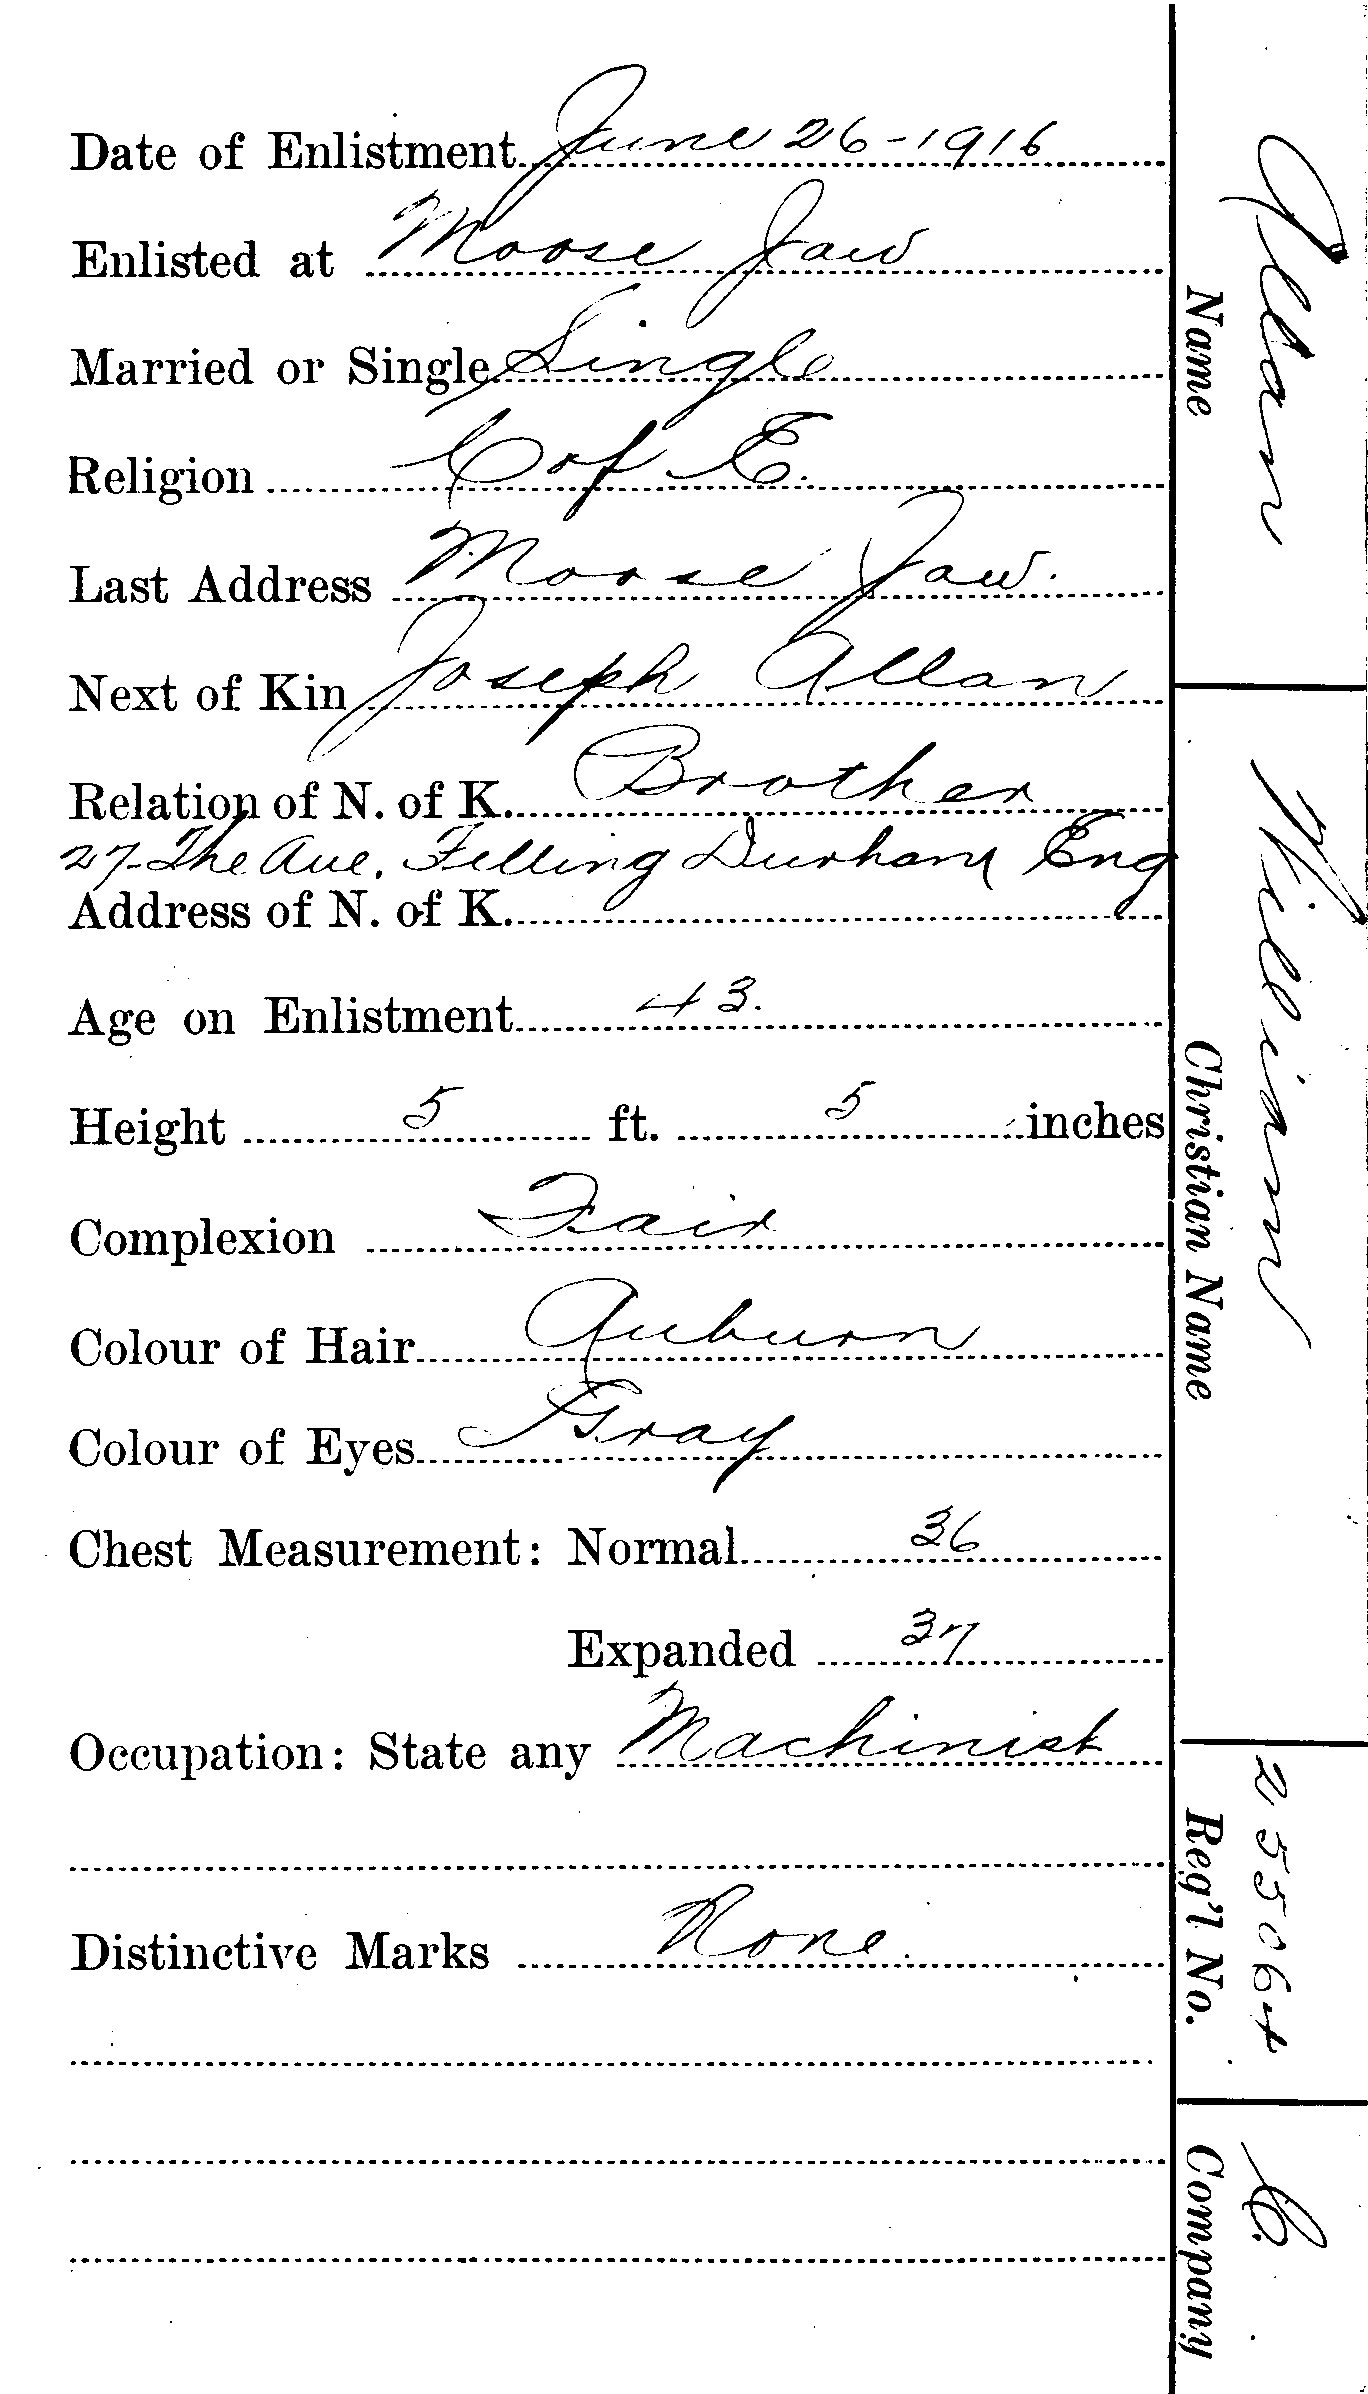 Date of Enlistment June 26-1916
Enlisted at Moose Jaw
Married or Single Single
Religion C of E.
Last Address Moose Jaw.
Next of Kin Joseph Allan
Relation of N. of K. Brother
27 The Ave. Felling Durham Eng
Address of N. of K.
Age on Enlistment 43.
Height 5 ft. 5 inches
Complexion Fair
Colour of Hair Auburn
Colour of Eyes Gray
Chest Measurement: Normal 36
Expanded 37
Occupation: State any Machinist
Distinctive Marks None.
Allan
Name
William
Christian Name
255064
Reg'l No.
C.
Company